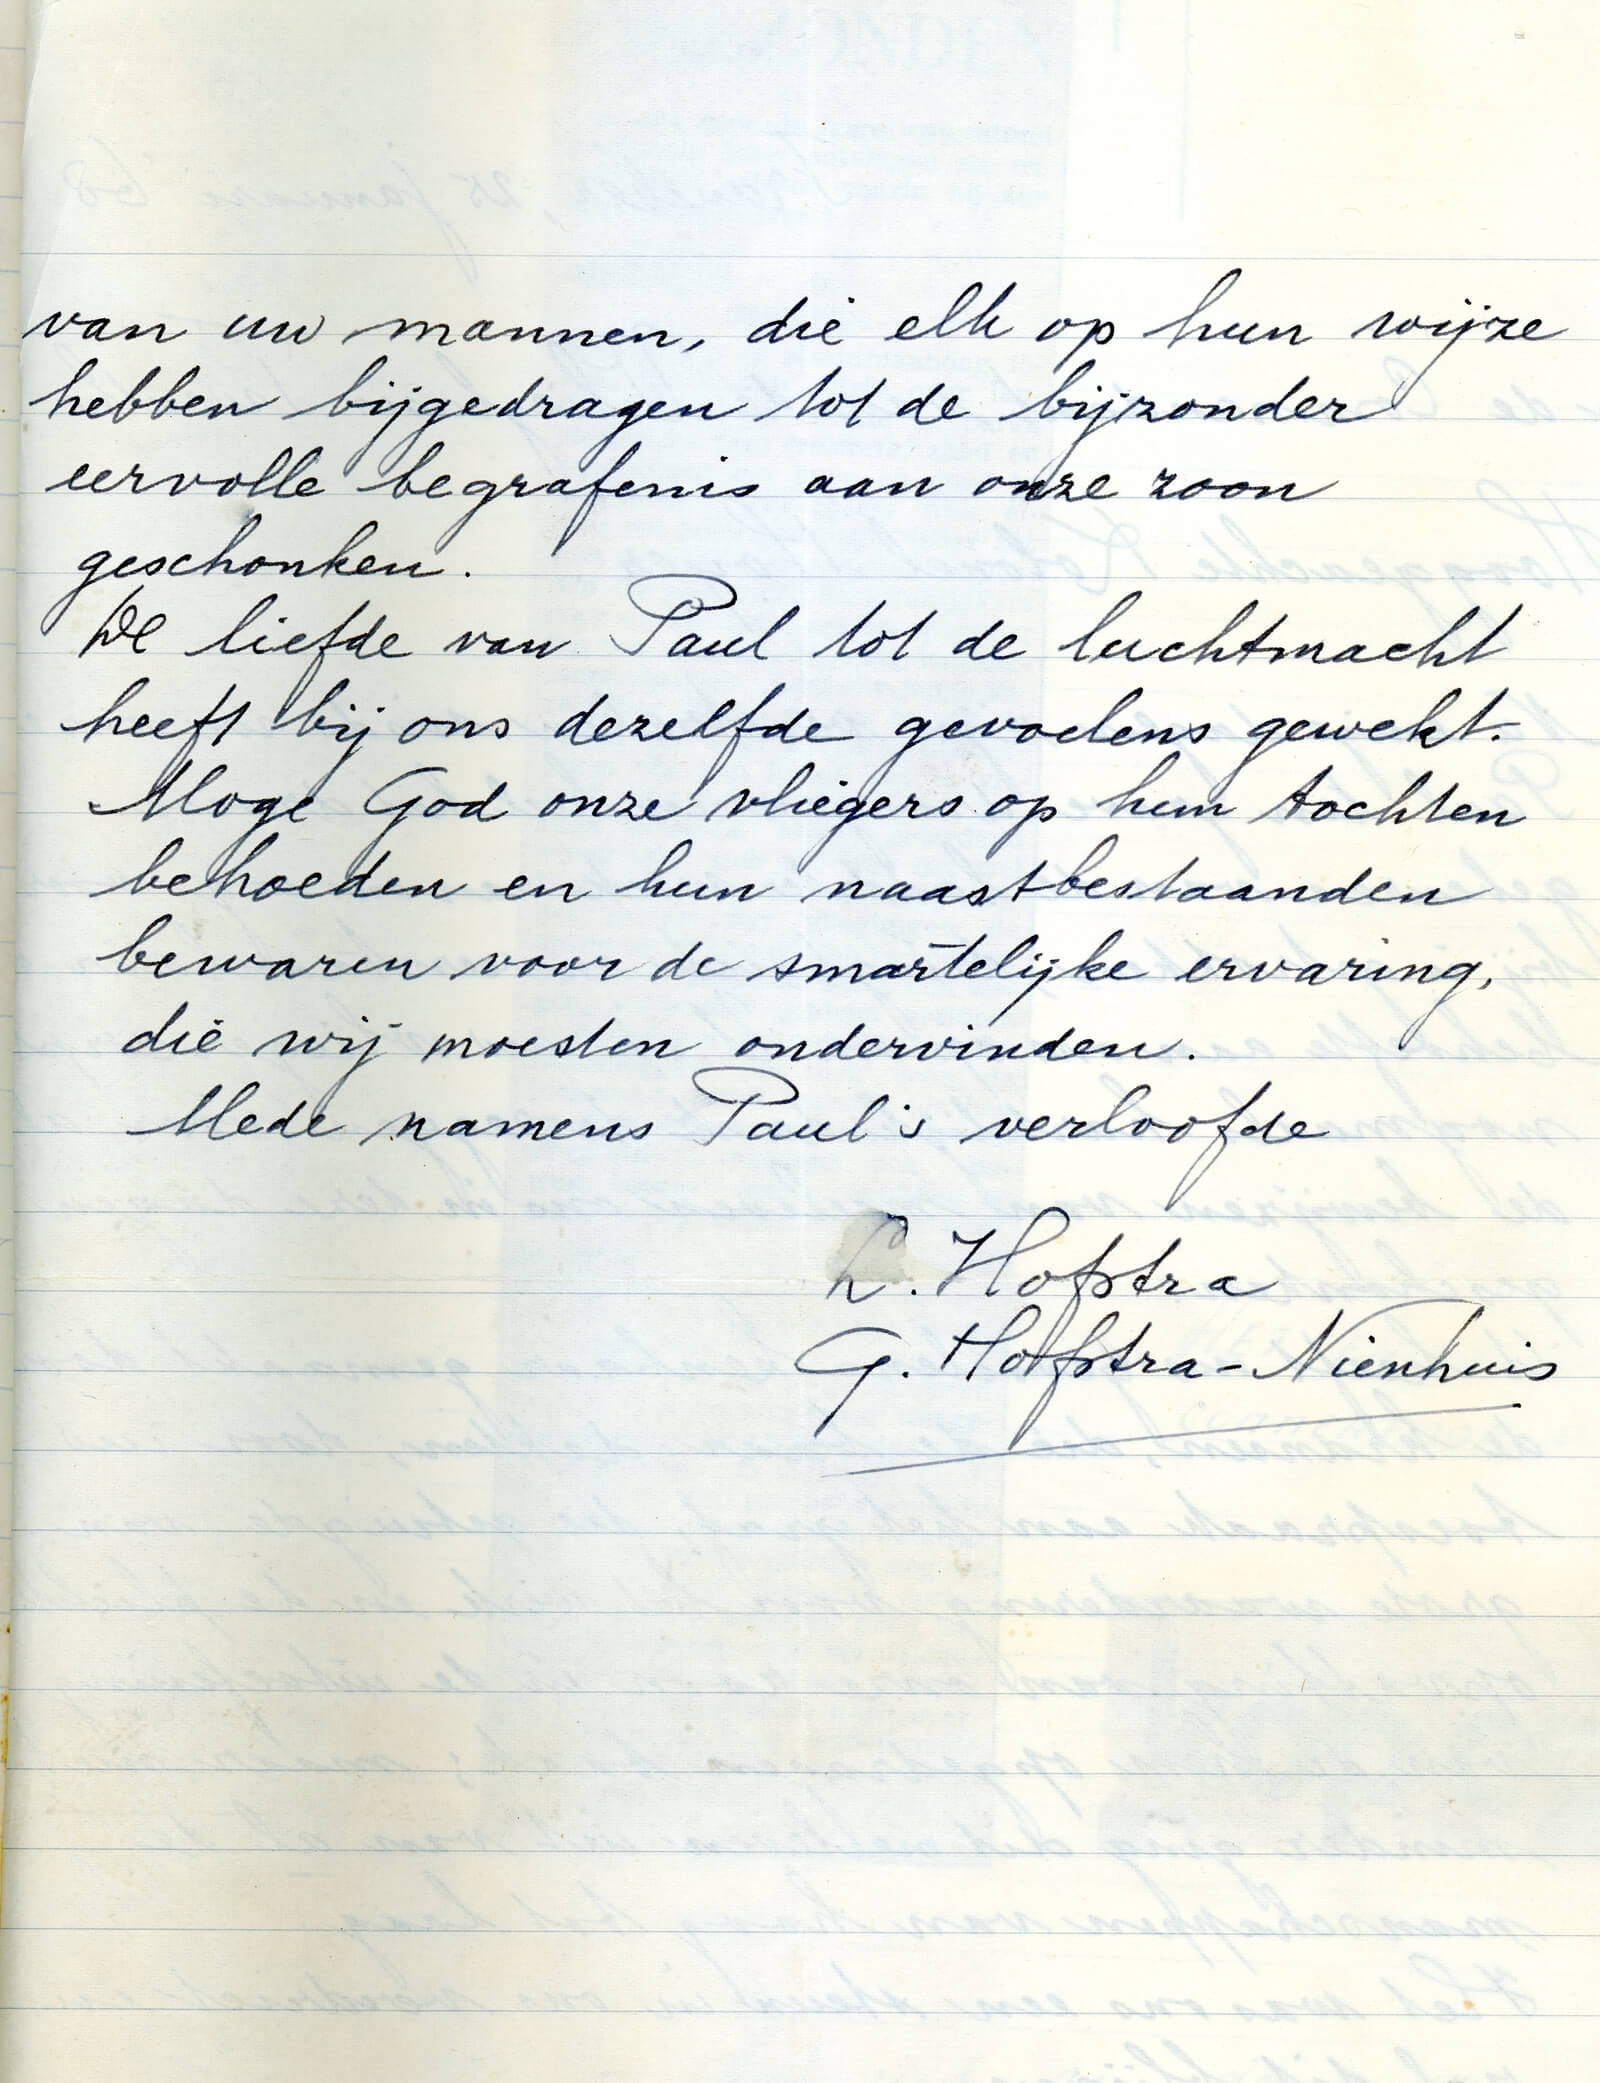 van uw mannen, die elk op hun wijze
hebben bijgedragen tot de bijzonder
eervolle begrafenis aan onze zoon
geschonken.
De liefde van Paul tot de luchtmacht
heeft bij ons dezelfde gevoelens gewekt.
Moge God onze vliegers op hun tochten
behoeden en hun naastbestaanden
bewaren voor de smartelijke ervaring,
die wij moesten ondervinden.
Mede namens Paul's verloofde
L. Hofstra
G. Hofstra-Nienhuis